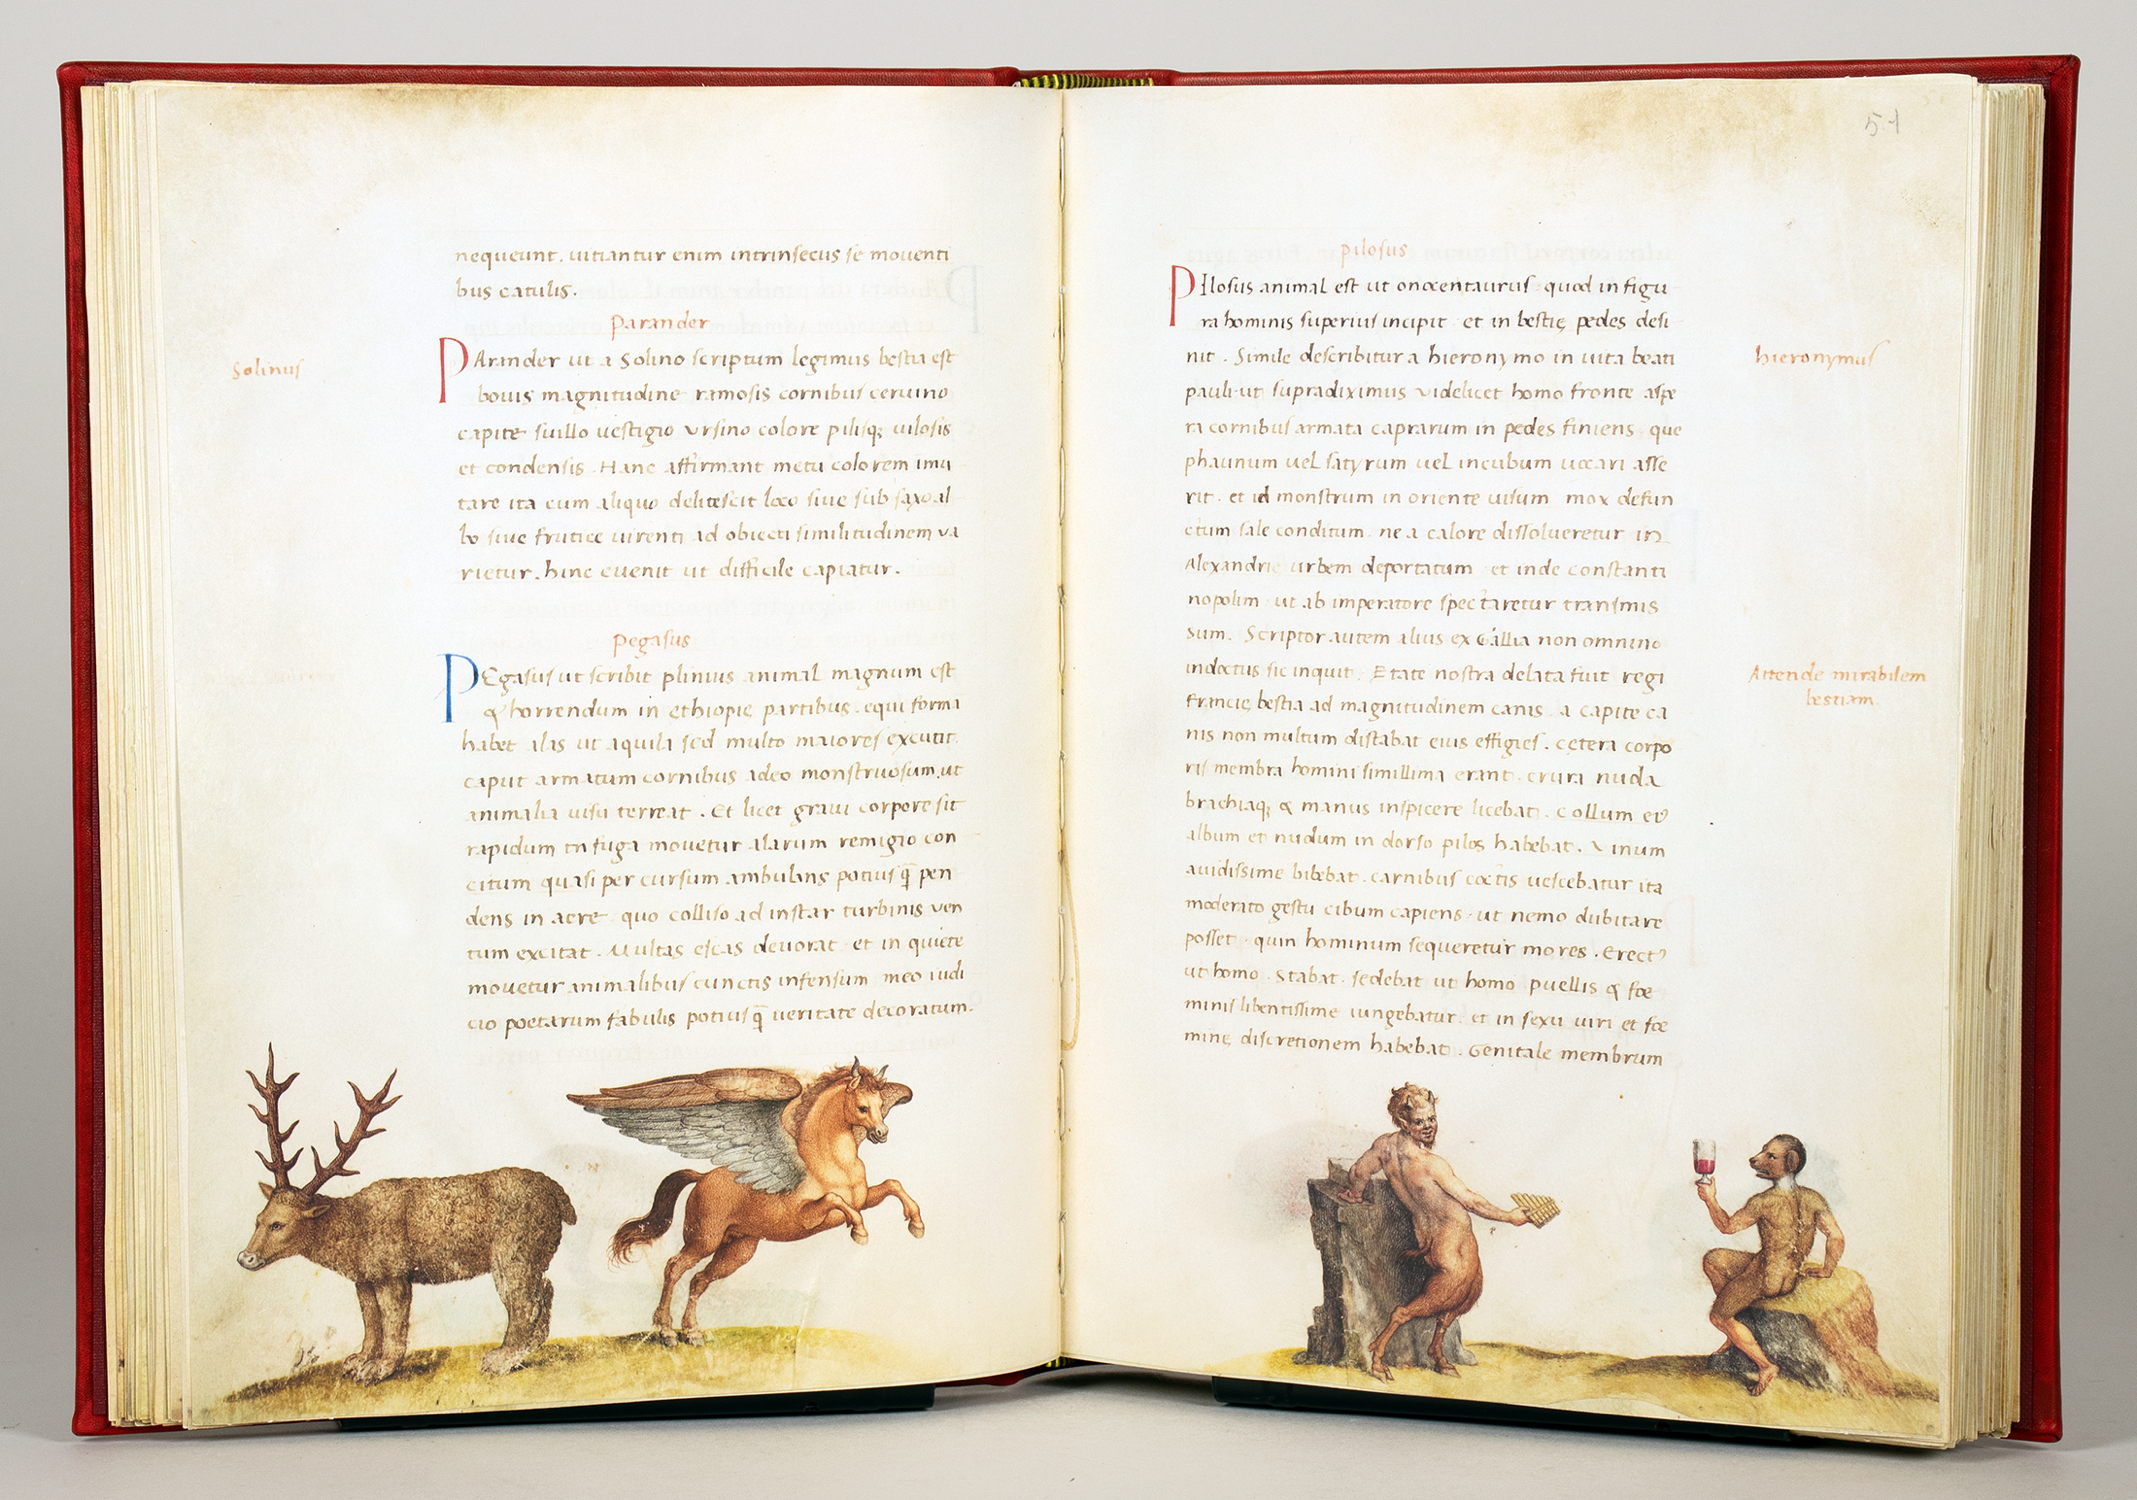 nequeunt. uitiantur enim intrinsecus se mouenti
bus catulis.
Parander
Solinus
PArander ut a Solino scriptum legimus bestia est
bouis magnitudine ramosis cornibus ceruino
capite suillo uestigio Vrsino colore pilisq; uilosis
et condensis. Hanc affirmant metu colorem imu
tare ita cum aliquo delitescit loco siue sub saxo al
bo siue frutice uirenti ad obiecti similitudinem va
rietur. hinc euenit ut difficile capiatur.
Pegasus
PEgasus ut scribit plinius animal magnum est
& horrendum in ethiopię partibus. equi forma
habet alas ut aquila sed multo maiores excutit
caput armatum cornibus adeo monstruosum. ut
animalia uisu terreat. Et licet graui corpore sit
rapidum in fuga mouetur alarum remigio con
citum quasi per cursum ambulans potius q̄ pen
dens in aere quo colliso ad instar turbinis ven
tum excitat. Multas escas deuorat et in quiete
mouetur animalibus cunctis infensum meo iudi
cio poetarum fabulis potius q̄ veritate decoratum.
51
Pilosus
PIlosus animal est ut onocentaurus quod in figu
ra hominis superius incipit et in bestię pedes desi
nit. Simile describitur a hieronymo in uita beati
hieronymus
pauli ut supradiximus videlicet homo fronte aspe
ra cornibus armata caprarum in pedes finiens que
phaunum uel satyrum uel incubum uocari asse
rit. et id monstrum in oriente uisum mox defun
ctum sale conditum ne a calore dissolueretur in
Alexandrię urbem deportatum et inde constanti
nopolim ut ab imperatore spectaretur transmis
sum. Scriptor autem alius ex Gallia non omnino
indoctus sic inquit. Etate nostra delata fuit regi
Attende mirabilem
bestiam
francię bestia ad magnitudinem canis a capite ca
nis non multum distabat eius effigies. cetera corpo
ris membra homini simillima erant. crura nuda
brachiaq; & manus inspicere licebat. Collum eiꝰ
album et nudum in dorso pilos habebat. Vinum
auidissime bibebat. carnibus coctis uescebatur ita
moderato gestu cibum capiens ut nemo dubitare
posset quin hominum sequeretur mores. Erectꝰ
ut homo Stabat. sedebat ut homo puellis & foe
minis libentissime iungebatur. et in sexu uiri et foe
minę discretionem habebat. Genitale membrum